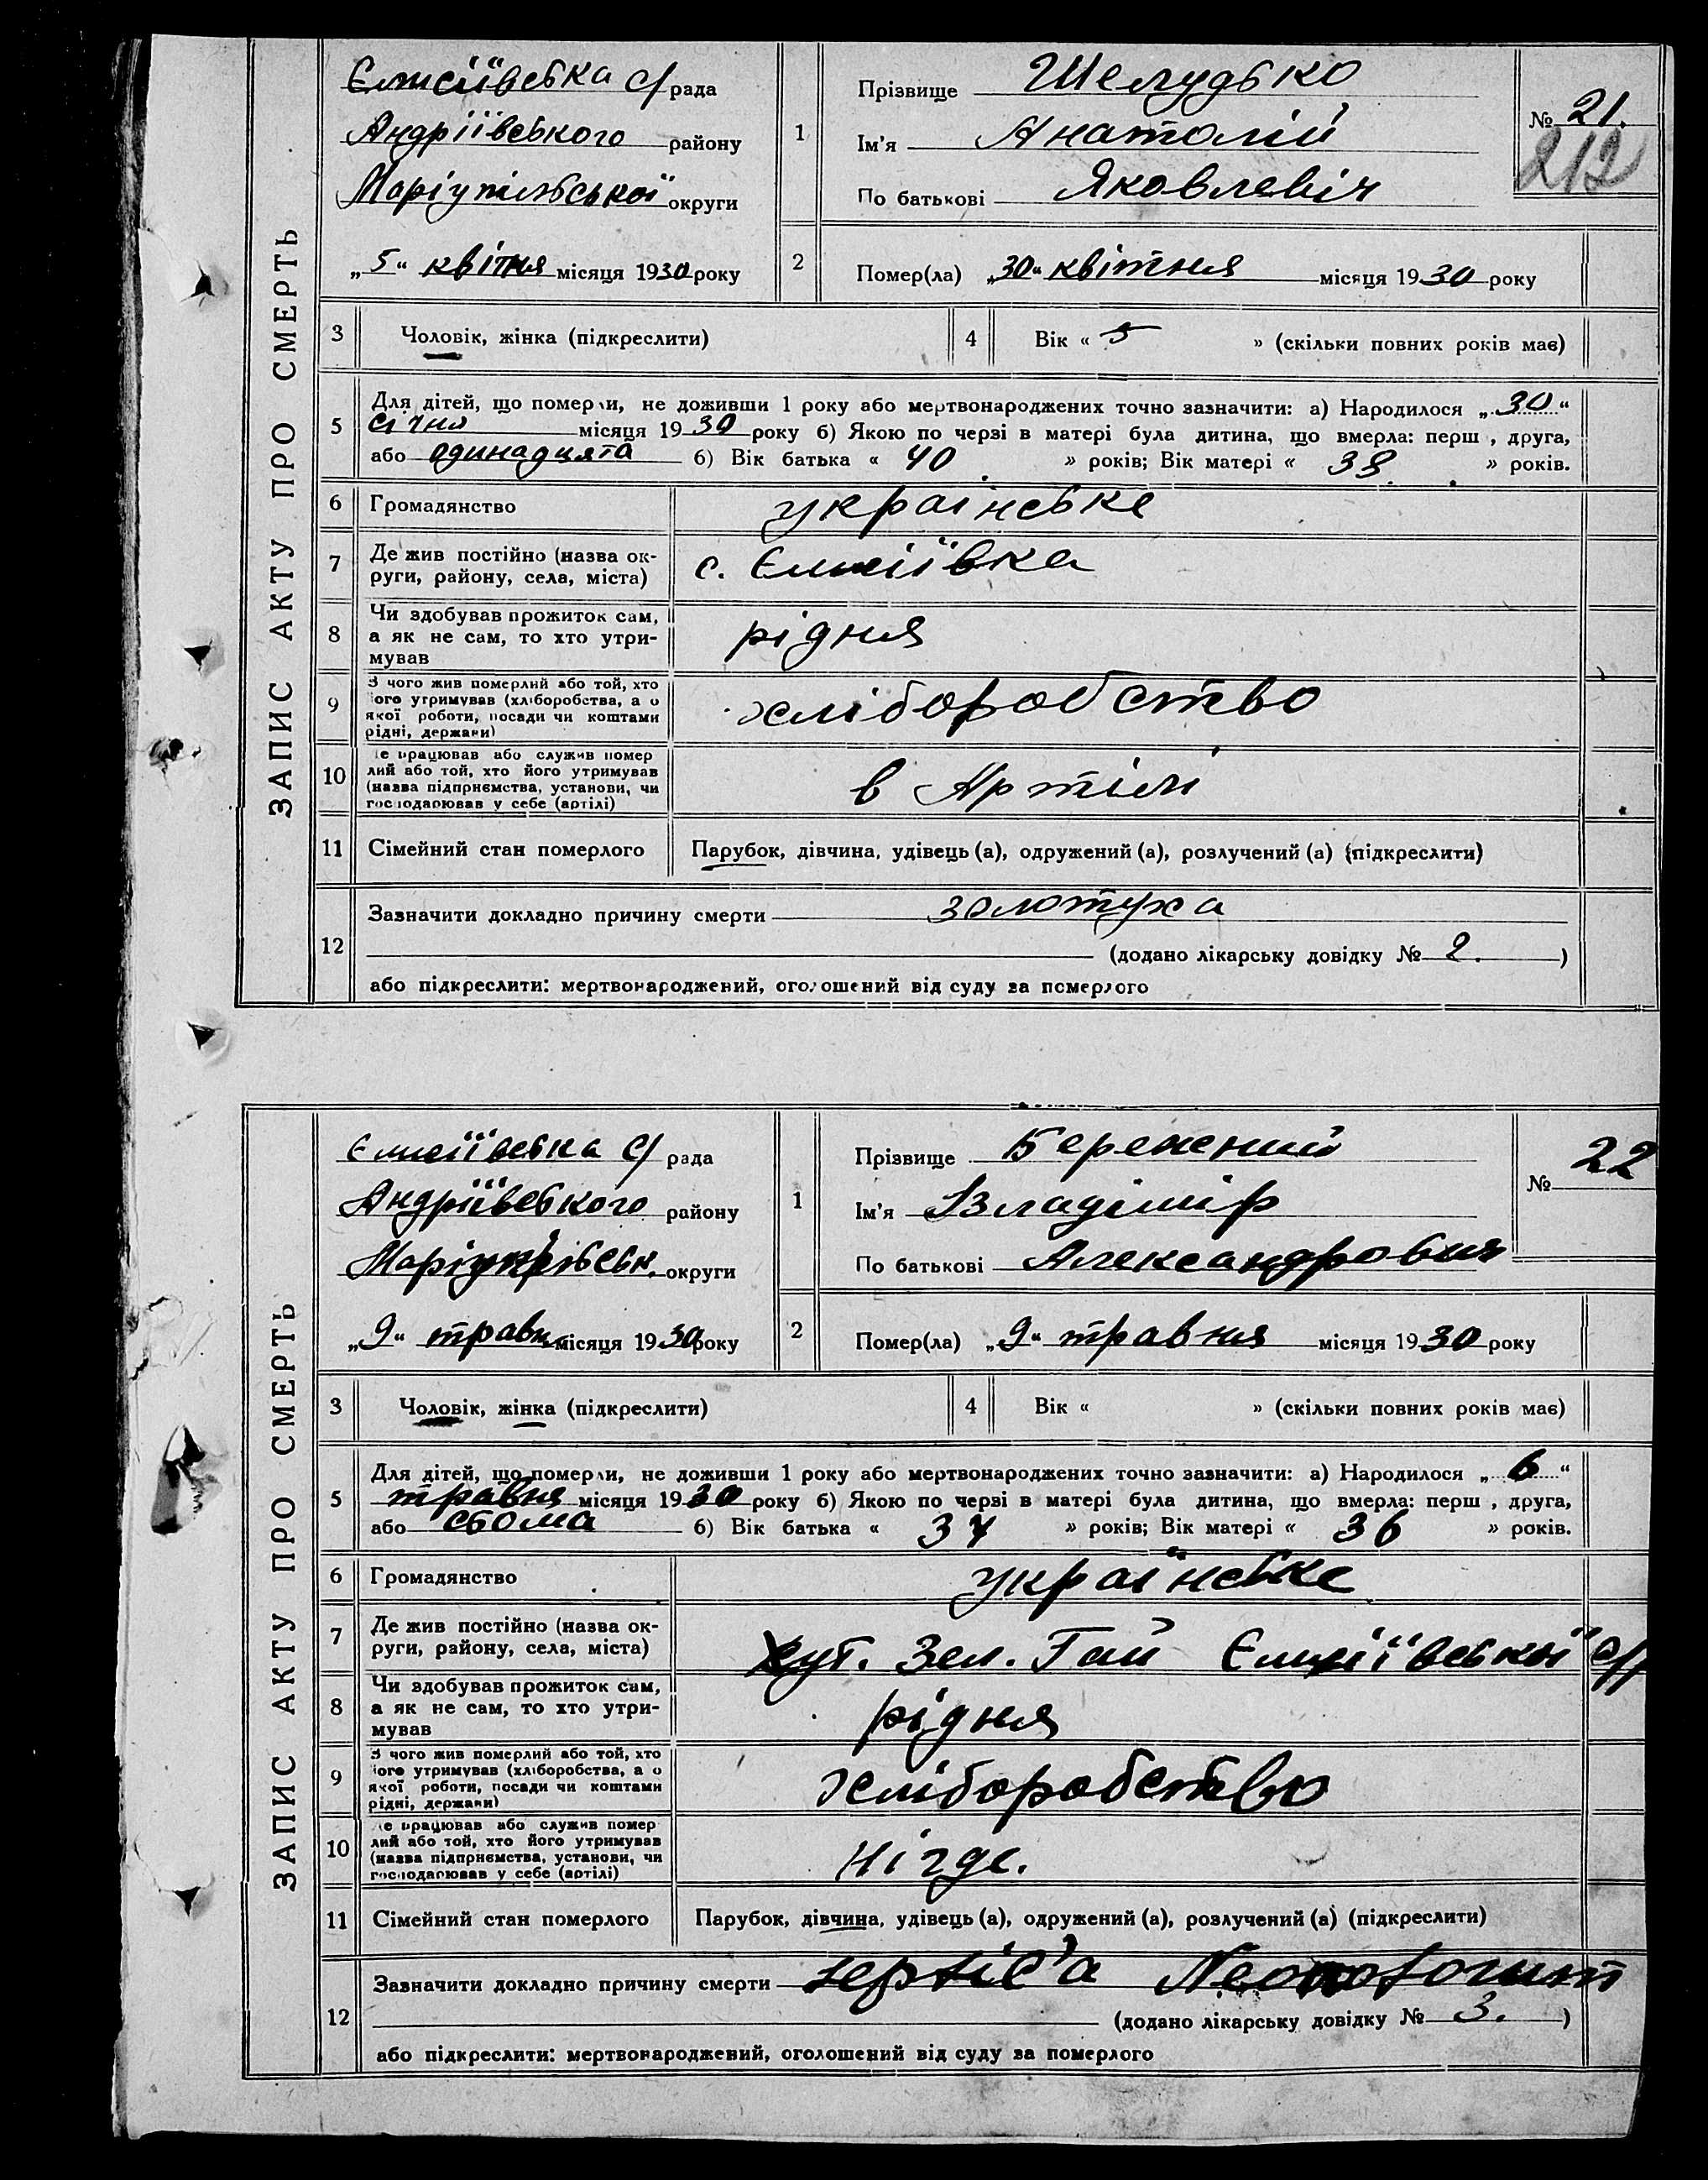 ЗАПИС АКТУ ПРО СМЕРТЬ
Єлисіївська с/рада
Андріївського району
Маріупільської округи
„5“ квітня місяця 1930 року
1
Прізвище Шелудько
Ім'я Анатолій
По батькові Яковлевіч
№ 21.
212
2
Помер(ла) „30“ квітня місяця 1930 року
3 Чоловік, жінка (підкреслити)
4 Вік « 5 » (скільки повних років має)
5 Для дітей, що померли, не доживши 1 року або мертвонароджених точно зазначити: а) Народилося „30“
січня місяця 1930 року б) Якою по черзі в матері була дитина, що вмерла: перш , друга,
або одинадцята б) Вік батька « 40 » років; Вік матері « 38. » років.
6 Громадянство українське
7 Де жив постійно (назва ок-
руги, району, села, міста) с. Єлисіївка
8 Чи здобував прожиток сам,
а як не сам, то хто утри-
мував рідня
9 З чого жив померлий або той, хто
його утримував (хліборобства, а о
якої роботи, посади чи коштами
рідні, держави) хліборобство
10 е працював або служив помер
лий або той, хто його утримував
(назва підприємства, установи, чи
господарював у себе (артілі) в Артілі
11 Сімейний стан померлого Парубок, дівчина, удівець (а), одружений (а), розлучений (а) (підкреслити)
12 Зазначити докладно причину смерти золотуха
(додано лікарську довідку № 2. )
або підкреслити: мертвонароджений, оголошений від суду за померлого
ЗАПИС АКТУ ПРО СМЕРТЬ
Єлисіївська с/рада
Андріївського району
округи
„9“ травн місяця 1930 року
1
Прізвище Бережний
Ім'я Владімір
По батькові Александрович
№ 22
2
Помер(ла) „9“ травня місяця 1930 року
3 Чоловік, жінка (підкреслити)
4 Вік « » (скільки повних років має)
5 Для дітей, що померли, не доживши 1 року або мертвонароджених точно зазначити: а) Народилося „6“
травня місяця 1930 року б) Якою по черзі в матері була дитина, що вмерла: перш , друга,
або сьома б) Вік батька « 37 » років; Вік матері « 36 » років.
6 Громадянство українське
7 Де жив постійно (назва ок-
руги, району, села, міста) хут. Зел. Гай Єлисіївської с/р
8 Чи здобував прожиток сам,
а як не сам, то хто утри-
мував рідня
9 З чого жив померлий або той, хто
його утримував (хліборобства, а о
якої роботи, посади чи коштами
рідні, держави) хліборобство
10 е працював або служив помер
лий або той, хто його утримував
(назва підприємства, установи, чи
господарював у себе (артілі) нігде.
11 Сімейний стан померлого Парубок, дівчина, удівець (а), одружений (а), розлучений (а) (підкреслити)
12 Зазначити докладно причину смерти
(додано лікарську довідку № 3. )
або підкреслити: мертвонароджений, оголошений від суду за померлого